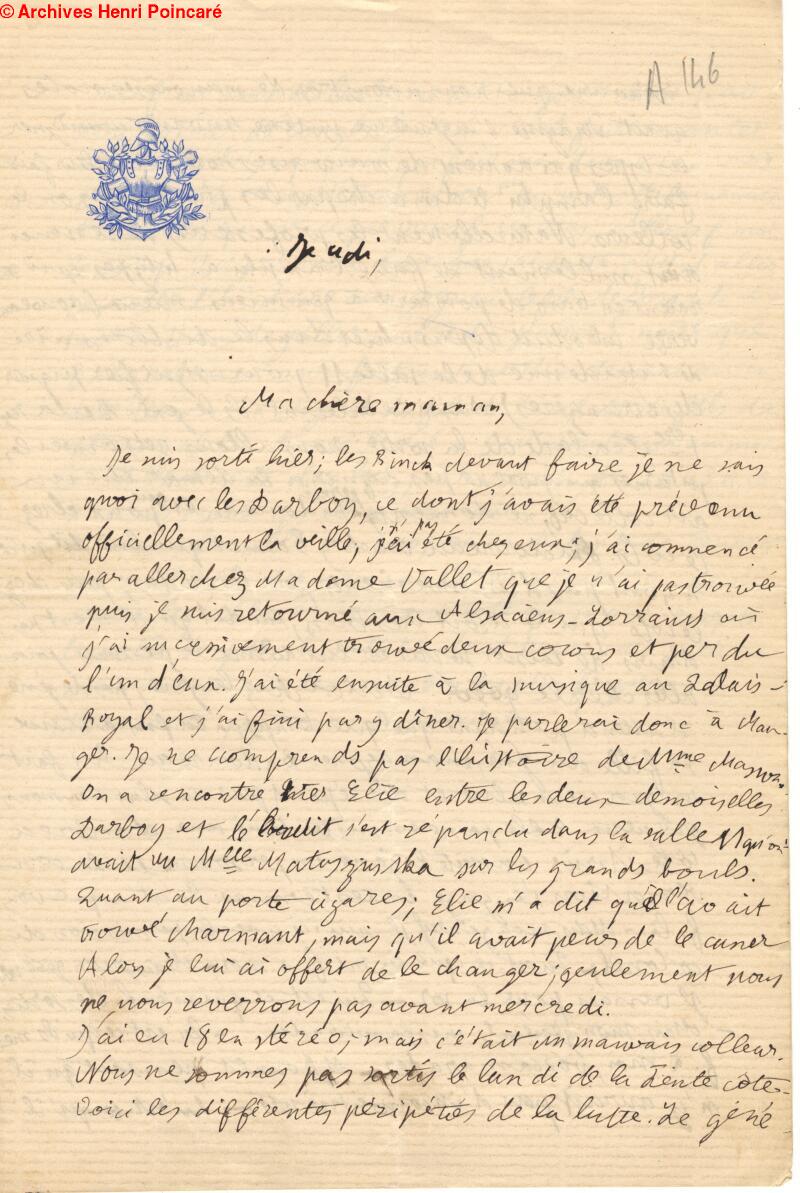 © Archives Henri Poincaré
A 146
Jeudi,
Ma chère maman,
Je suis sorti hier; les Rinck devant faire je ne sais
quoi avec les Darboy, ce dont j'avais été prévenu
officiellement la veille, je n'ai pas été chez eux; j'ai commencé
par aller chez Madame Vallet que je n'ai pas trouvée
puis je suis retourné aux Alsaciens-Lorrains où
j'ai successivement trouvé deux cocons et perdu
l'un d'eux. J'ai été ensuite à la musique au Palais-
Royal et j'ai fini par y dîner. Je parlerai donc à Man-
ger. Je ne comprends pas l'histoire de Mme
On a rencontré hier Elie entre les deux demoiselles
Darboy et le bruit s'est répandu dans la salle 11 qu'on
avait vu Mlle Matuszinska sur les grands boul.
Quant au porte cigares; Elie m'a dit qu'il l'avait
trouvé charmant, mais qu'il avait peur de le casser
Alors je lui ai offert de le changer; seulement nous
ne nous reverrons pas avant mercredi.
J'ai eu 18 en stéréo; mais c'était un mauvais colleur.
Nous ne sommes pas sortis le lundi de la Pentecôte-
Voici les différentes péripéties de la lutte. Le géné